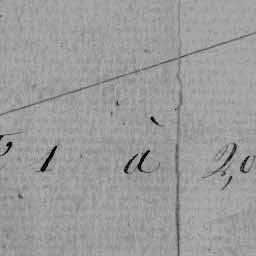 1 à 2,0